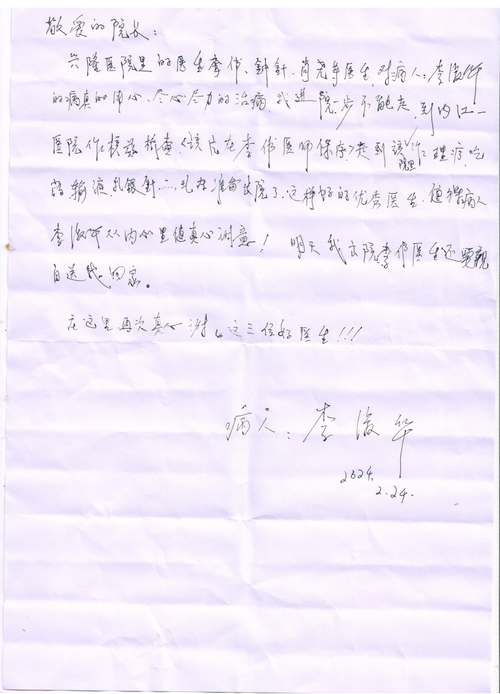 敬爱的院长：
兴隆医院里的医生李伟、钟针、肖尧等医生，对病人：李淑华
的病真的用心、尽心尽力的治病，我进院一步不能走，到内江一
医院作了核磁检查（该片在李伟医师保存）走到该院里作了理疗，吃
药输液扎银针……扎在准备出院了，这样好的优秀医生，值得病人
李淑华从内心里值真心满意！ 明天我出院李伟医生还要亲
自送我回家。
在这里再次真心谢谢这三位好医生!!!
病人：李淑华
2024.
2.24.